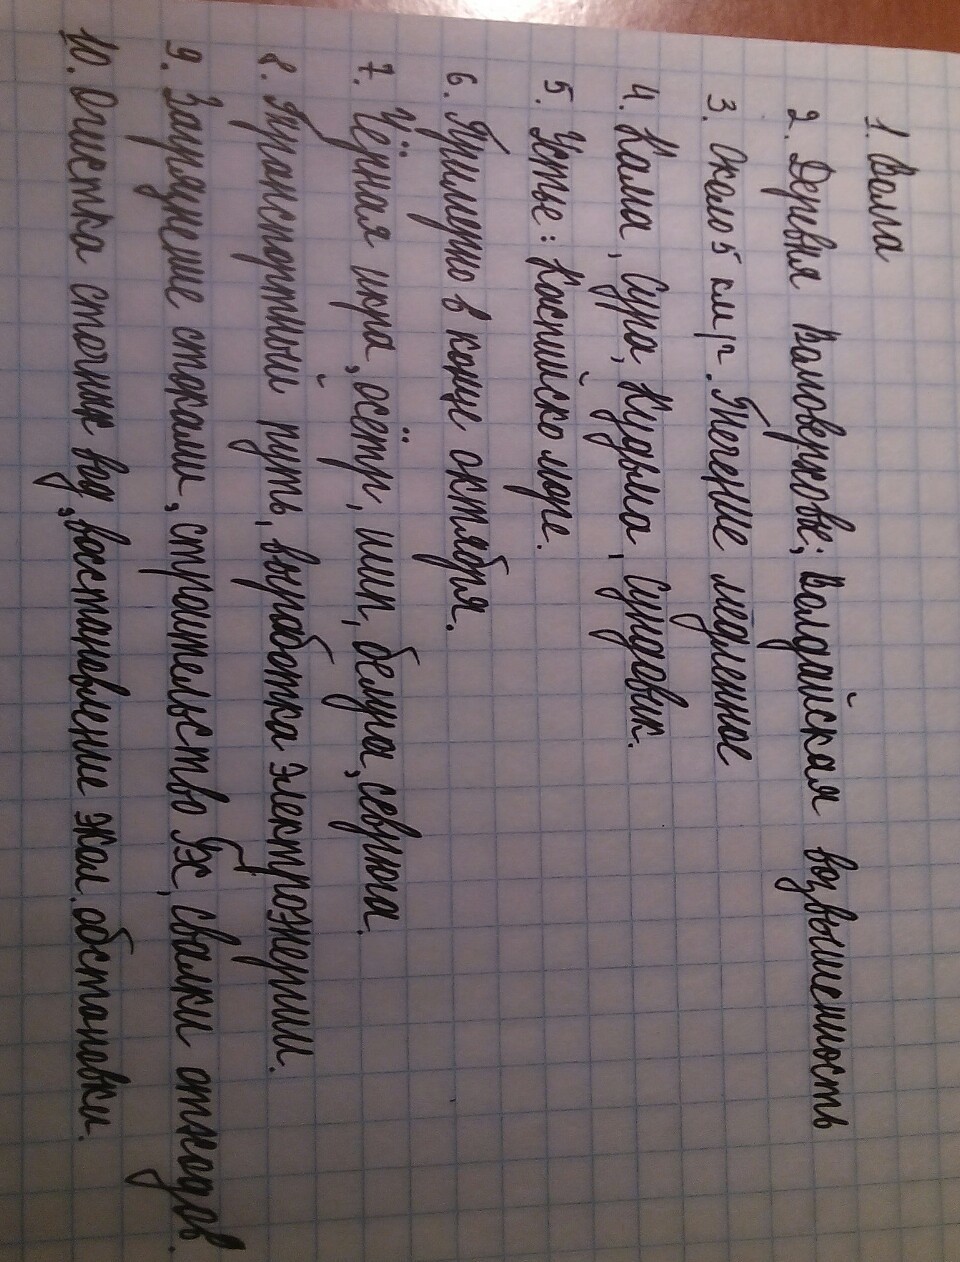 1. Волга
2. Деревня Волговерховье; Валдайская возвышенность
3. Около 5 км/ч. Течение медленное
4. Кама, Сура, Кудьма, Сундовик.
5. Устье: Каспийско море.
6. Примерно в конце октября.
7. Чёрная икра, осётр, шип, белуга, севрюга.
8. Транспортный путь, выработка электроэнергии.
9. Загрязнение стоками, строительство ГЭС, свалки отходов.
10. Очистка сточных вод, восстановление экол. обстановки.